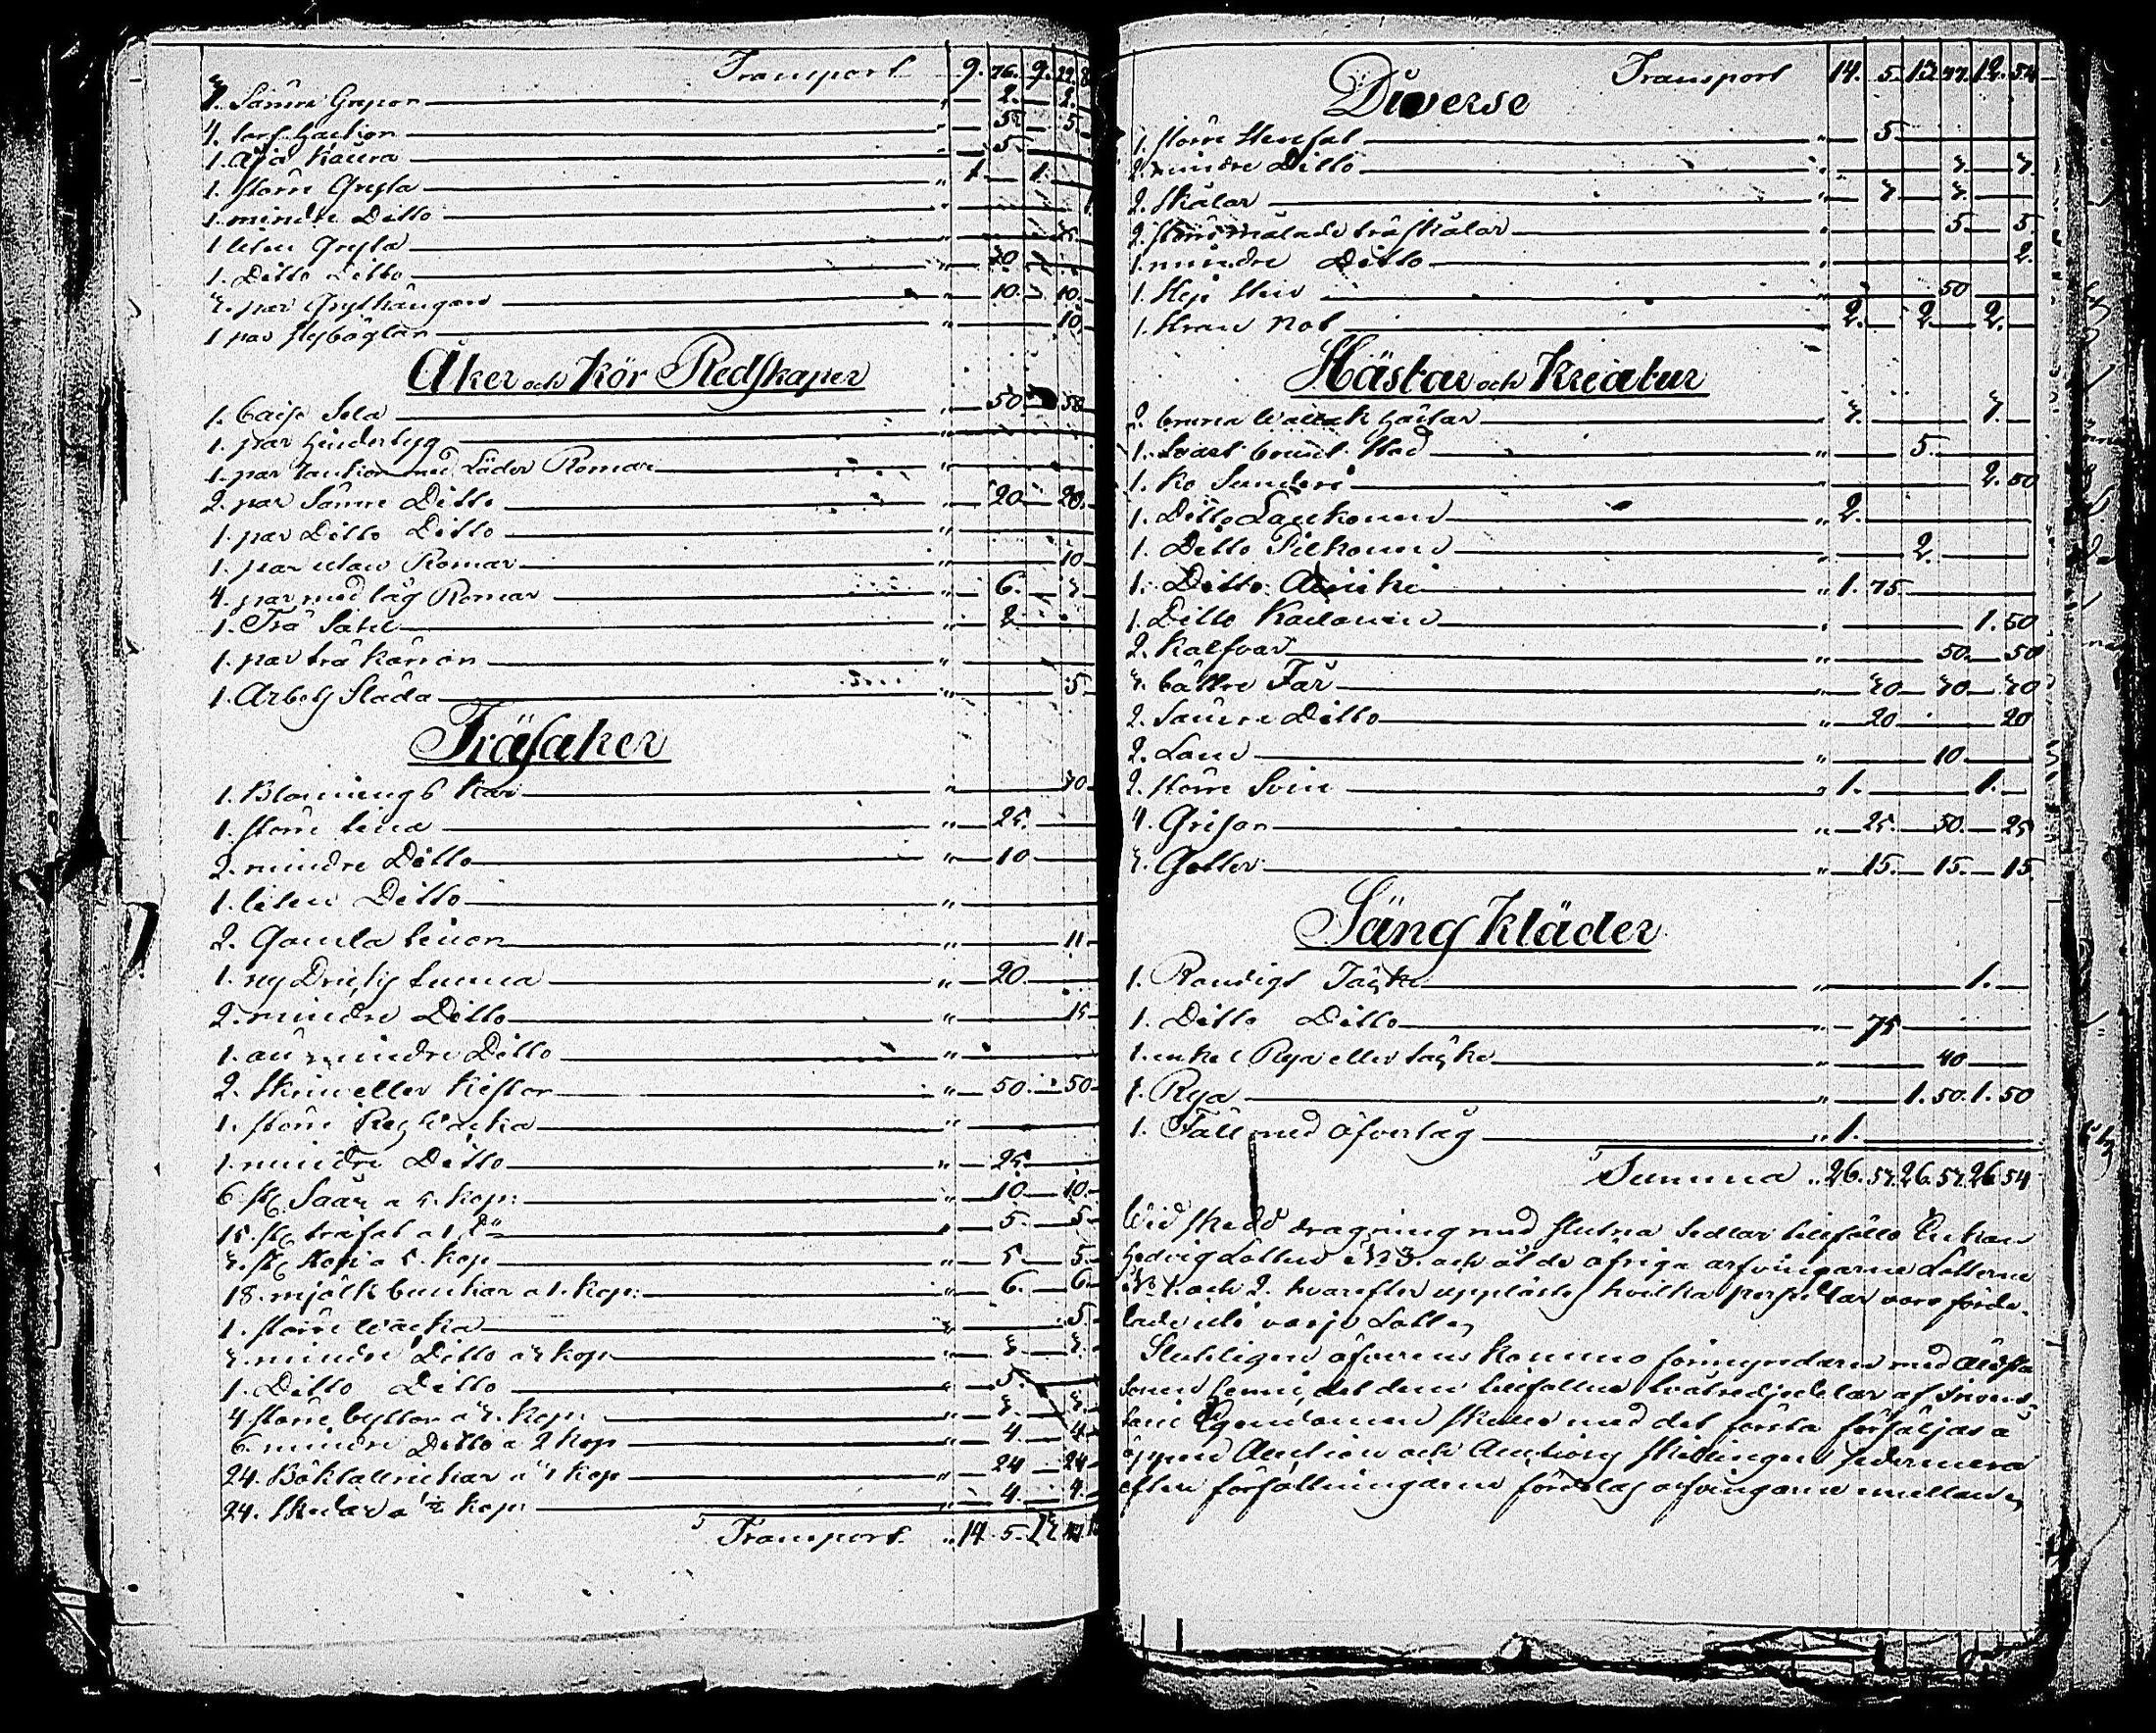 Transport 9. 76. 9. 22. 8
3. Sämre Grepor " 2. 2.
4. torf Hackor " 5 5
1. Aija Kaura " 5
1. större Gryta " 1. 1.
1. mindre Ditto "
1 liten Gryta " 25.
1. Ditto Ditto " 30
3. par Grythängare " 10. 10.
1 par Stÿböglar " 10.
Åker och Kör Redskaper
1. Caise Sela " 50. 50
1. par Hindertyg "
1. par Rankior med Läder Romar "
2. par Sämre Ditto " 20. 20.
1. par Ditto Ditto "
1. par utan Romar " 10
4. par med tåg Romar " 6. 3
1. Trä Satel " 2
1. par trä kärror "
1. Arbets Släda " 5
Träsaker
1. Blånings Kar " 30
1. större tina " 25.
2. mindre Ditto " 10
1. liten Ditto "
2. Gamla tinor " 11
1. ny Drickes tunna " 20.
2. mindre Ditto " 15
1. än mindre Ditto "
2. Skrin eller Kistor " 50. 50
1. större Reg Wacka "
1. mindre Ditto " 25
6. st. Saar a 5. kop: " 10 10.
15. st. träfat a 1. D:o " 5. 5
3. st. Kopi a 5. kop " 5 5.
18. mjölk bunkar a 1. kop: " 6. 6.
1. större Wacka " 5.
3. mindre Ditto a 3 kop " 3 3.
1. Ditto Ditto " 5.
4 större byttor a 3. kop: " 3. 3.
6. mindre Ditto a 2 kop " 4. 4
24. Bóktallrickar a 3 kop " 24 24
24. Skedar a ½ kop: " 4. 4.
Transport " 14. 5. 13 77
Transport 14. 5. 13 77. 12. 54
Diverse
1. större Stenfat " 5.
2. mindre Ditto " 3. 3.
2. Skålar " 3 3.
2. större målade träskålar " 5 5.
1. mindre Ditto " 2.
1. Slip Sten " 50
1. Stran Not " 2. 2. 2.
Hästar och Kreatur
2. bruna Wallack Hästar " 3. 3.
1. Svart brunt Stod " 5.
1. Ko Sundari " 2. 50
1. Ditto Laukoinen " 2.
1. Ditto Pilkoinen " 2.
1. Ditto Ainiki " 1. 75
1. Ditto Karloinen " 1. 50
2. Kalfvar " 50. 50
3. bättre Får " 30 30 30
2. Sämre Ditto " 20 20
2. Lam " 10.
2. större Svin " 1. 1.
4. Grisar " 25. 50. 25
3. Getter " 15. 15. 15.
Säng Kläder
1. Randigt Täcke " 1.
1. Ditto Ditto " 75
1. enkel Rya eller täcke " 40
1. Rya " 1. 50. 1. 50
1. Fäll med öfvertåg " 1.
Summa " 26. 57. 26. 57. 26 54
Wid skedd dragning med slutna sedlar tillföllo Enkan
Hedvig Lotten N:o 3. och åt de öfriga arfvingarne Lotterne
N:o 1. och 2. hvarefter uppläste hvilka persedlar voro förde-
lade uti varje Lott.
Slutligen öfverens kommo förmyndaren med
sonen Henric, det dem tillfallne tvåtredjedelar af
Egendomen skulle med det första försäljas å
öppen Auction och Auctions skillingen sedermera
efter författningarne fördelas arfvingarne emellan